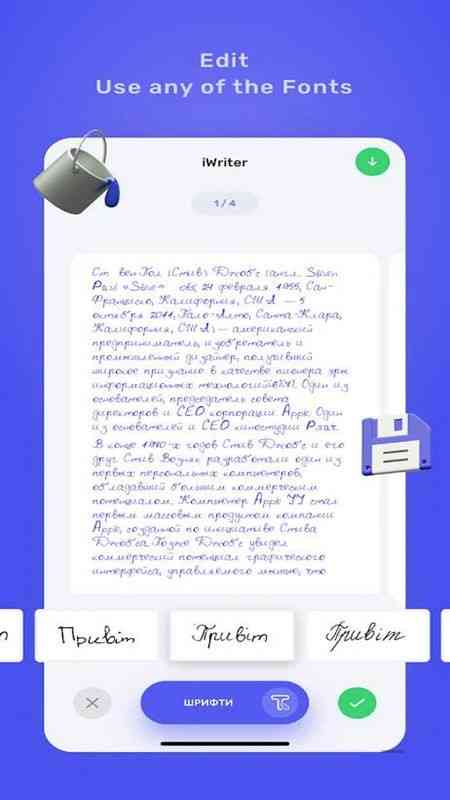 Edit
Use any of the Fonts
iWriter
1 / 4
Ст вен Пол (Стив) Джобс (англ. Steven
Paul «Steve» 24 февраля 1955, Сан-
Франциско, Калифорния, США — 5
октября 2011, Пало-Алто, Санта-Клара,
Калифорния, США) — американский
предприниматель, изобретатель и
промышленный дизайнер, получивший
широкое признание в качестве пионера эры
информационных технологий Один из
основателей, председатель совета
директоров и CEO корпорации Apple. Один
из основателей и CEO киностудии Pixar.
В конце 1970-х годов Стив Джобс и его
друг Стив Возняк разработали один из
первых персональных компьютеров,
обладавший большим коммерческим
потенциалом. Компьютер Apple II стал
первым массовым продуктом компании
Apple, созданной по инициативе Стива
Джобса. Позже Джобс увидел
коммерческий потенциал графического
интерфейса, управляемого мышью, что
Привіт
Привіт
Привіт
ШРИФТИ